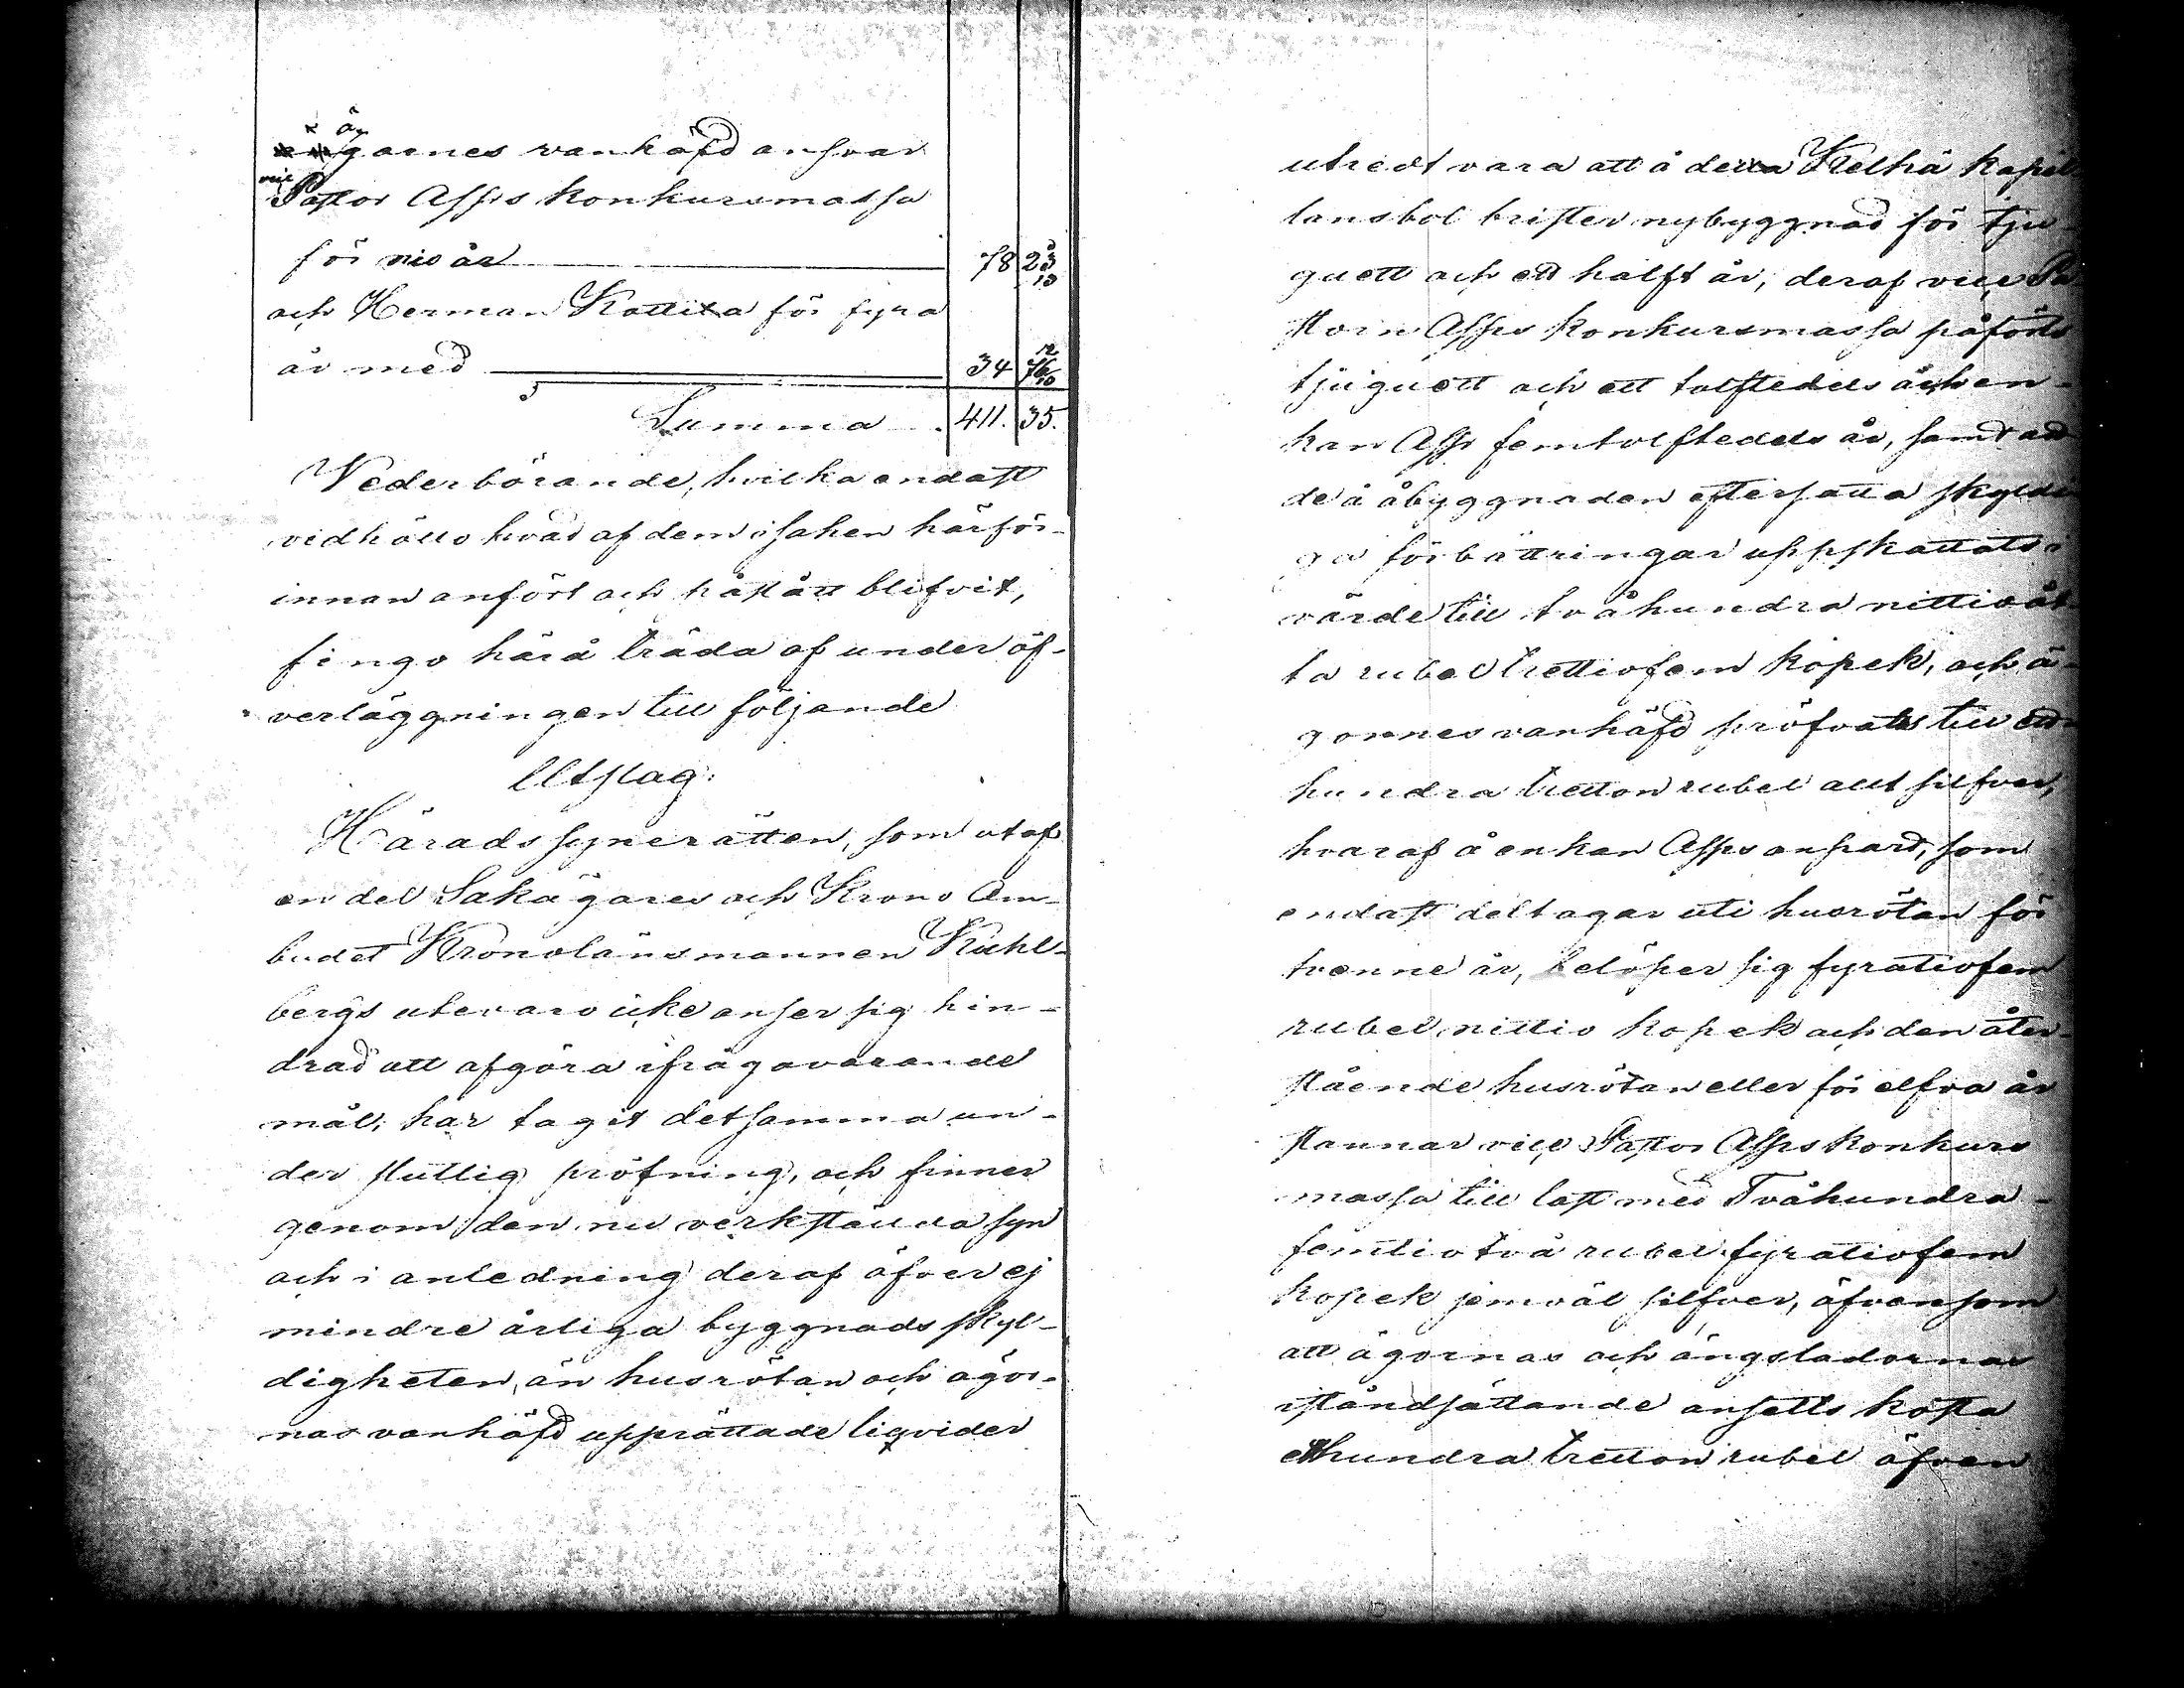 ägarnes vanhäfd ansvar
Pastor Asps konkursmassa
för nio år 78 23 1/3
och Herman Kottila för fyra
år med 34 76 12/13
Summa 411. 35.
Vederbörande, hvilka endast
vidhöllo hvad af dem i saken härför-
innan anfört och påstått blifvit,
fingo härå träda af under öf-
verläggningen till följande
Utslag:
Häradssynerätten, som utaf
en del Sakägares och Krono Om-
budet Kronolänsmannen Kuhl-
bergs utevaro icke anser sig hin-
drad att afgöra ifrågavarande
mål, har tagit detsamma un-
der slutlig pröfning, och finner
genom den nu verkställda syn
och i anledning deraf öfver ej
mindre årliga byggnads skyl-
digheten, än husrötan och ägor-
nas vanhäfd upprättade liqvider
utredt vara att å detta Kelhä kapel-
lansbol brister nybyggnad för tju-
guett och ett halft år, deraf vice Pa-
storn Asps konkursmassa påförts
tjuguett och ett tolftedels år, och en-
kan Asp femtolftedels år, samt att
de å åbyggnaden eftersatta skyldi-
ga förbättringar uppskattats i
värde till tvåhundra nittioåt-
ta rubel trettiofem kopek, och ä-
gornes vanhäfd pröfvats till ett-
hundra tretton rubel allt silfver,
hvaraf å enkan Asps anpart, som
endast deltagar uti husrötan för
tvenne år, belöper sig fyratiofem
rubel nittio kopek och den åter-
stående husrötan eller för elfva år
stannar vice Pastor Asps konkurs
massa till last med Tvåhundra-
femtiotvå rubel fyratiofem
kopek jemväl silfver, äfvensom
att ägornas och ängsladornas
iståndsättande ansetts kosta
etthundra tretton rubel äfven